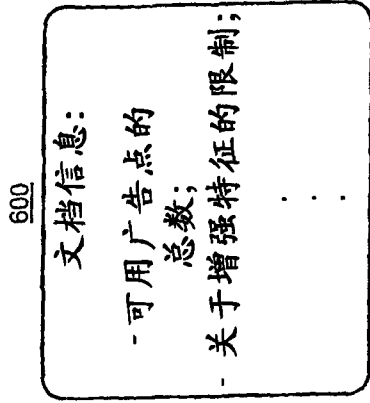 600
文档信息:
- 可用广告点的
总数;
- 关于增强特征的限制;
. . .